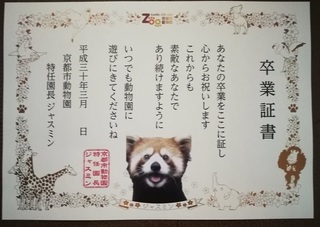 Zoo
卒業証書
あなたの卒業をここに証し
心からお祝いします
これからも
素敵なあなたで
あり続けますように
いつでも動物園に
遊びにきてくださいね
平成三十年三月 日
京都市動物園
特任園長 ジャスミン
京都市動物園
特任園長
ジャスミン
ジャスミン